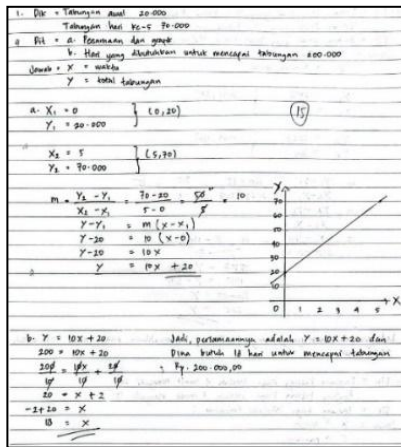 1. Dik = Tabungan awal 20.000
Tabungan hari ke-5 70.000
Dit = a. Persamaan dan grafik
b. Hari yang dibutuhkan untuk mencapai tabungan 200.000
Jawab = X = waktu
Y = total tabungan
a. X₁ = 0
Y₁ = 20.000 } (0,20)
15
X₂ = 5
Y₂ = 70.000 } (5,70)
m = Y₂ - Y₁ / X₂ - X₁ = 70-20 / 5-0 = 50 / 5 = 10
Y-Y₁ = m (x-x₁)
Y-20 = 10 (x-0)
Y-20 = 10x
Y = 10x + 20
Y
70
60
50
40
30
20
10
0 1 2 3 4 5 X
b. Y = 10x + 20
200 = 10x + 20
200/10 = 10x/10 + 20/10
20 = x + 2
-2+20 = x
18 = x
Jadi, persamaannya adalah Y = 10x + 20 dan
Dina butuh 18 hari untuk mencapai tabungan
Rp. 200.000,00